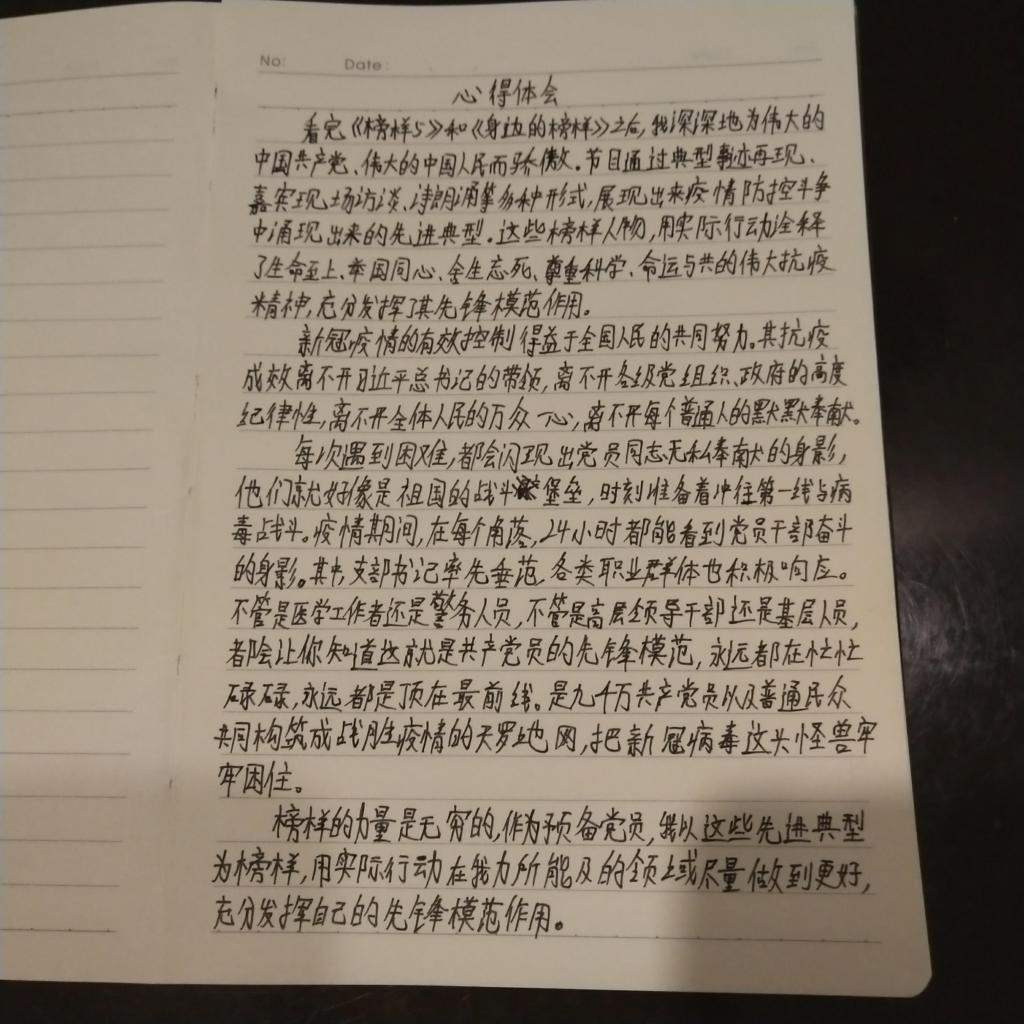 No: Date:
心得体会
看完《榜样5》和《身边的榜样》之后,我深深地为伟大的
中国共产党、伟大的中国人民而骄傲。节目通过典型事迹再现、
嘉宾现场访谈、诗朗诵等多种形式,展现出来疫情防控斗争
中涌现出来的先进典型。这些榜样人物,用实际行动诠释
了生命至上、举国同心、舍生忘死、尊重科学、命运与共的伟大抗疫
精神,充分发挥了其先锋模范作用。
新冠疫情的有效控制得益于全国人民的共同努力。其抗疫
成效离不开习近平总书记的带领,离不开各级党组织、政府的高度
纪律性,离不开全体人民的万众一心,离不开每个普通人的默默奉献。
每次遇到困难,都会闪现出党员同志无私奉献的身影,
他们就好像是祖国的战斗堡垒,时刻准备着冲往第一线与病
毒战斗。疫情期间,在每个角落,24小时都能看到党员干部奋斗
的身影。其中,支部书记率先垂范,各类职业群体也积极响应。
不管是医学工作者还是警务人员,不管是高层领导干部还是基层人员,
都会让你知道这就是共产党员的先锋模范,永远都在忙忙
碌碌,永远都是顶在最前线。是九千万共产党员以及普通民众
共同构筑成战胜疫情的天罗地网,把新冠病毒这头怪兽牢
牢困住。
榜样的力量是无穷的,作为预备党员,我以这些先进典型
为榜样,用实际行动在我力所能及的领域尽量做到更好,
充分发挥自己的先锋模范作用。